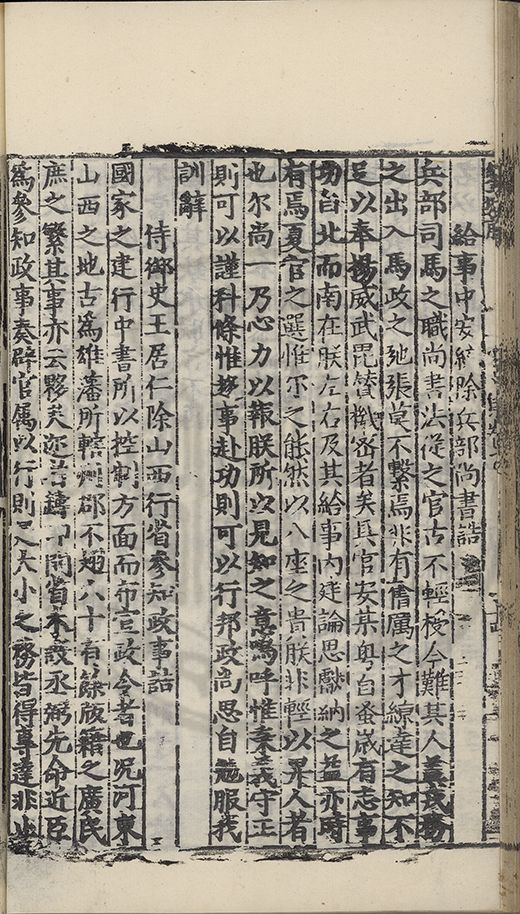 給事中安統除兵部尚書誥
兵部司馬之職尚書法從之官古不輕授今難其人蓋戎務
之出入馬政之弛張莫不繫焉非有舊厲之才綜達之知不
足以奉揚威武毘贊機密者矣具官安某粤自蚤歲有志事
功自北而南在朕左右及其給事內廷論思獻納之益亦時
有焉夏官之選惟尓之能然以八座之貴朕非輕以畀人者
也尔尚一乃心力以報朕所以見知之意嗚呼惟秉義守正
則可以謹科條惟趍事赴功則可以行邦政尚思自勉服我
訓辭
侍御史王居仁除山西行省參知政事誥
國家之建行中書所以控制方面而布宣政令者也况河東
山西之地古爲雄藩所轄州郡不趐八十有餘版籍之廣民
庶之繁其事亦云夥矣迩者鑄印開省未設丞弼先命近臣
爲參知政事奏辟官属以行則又大小之務皆得專達非